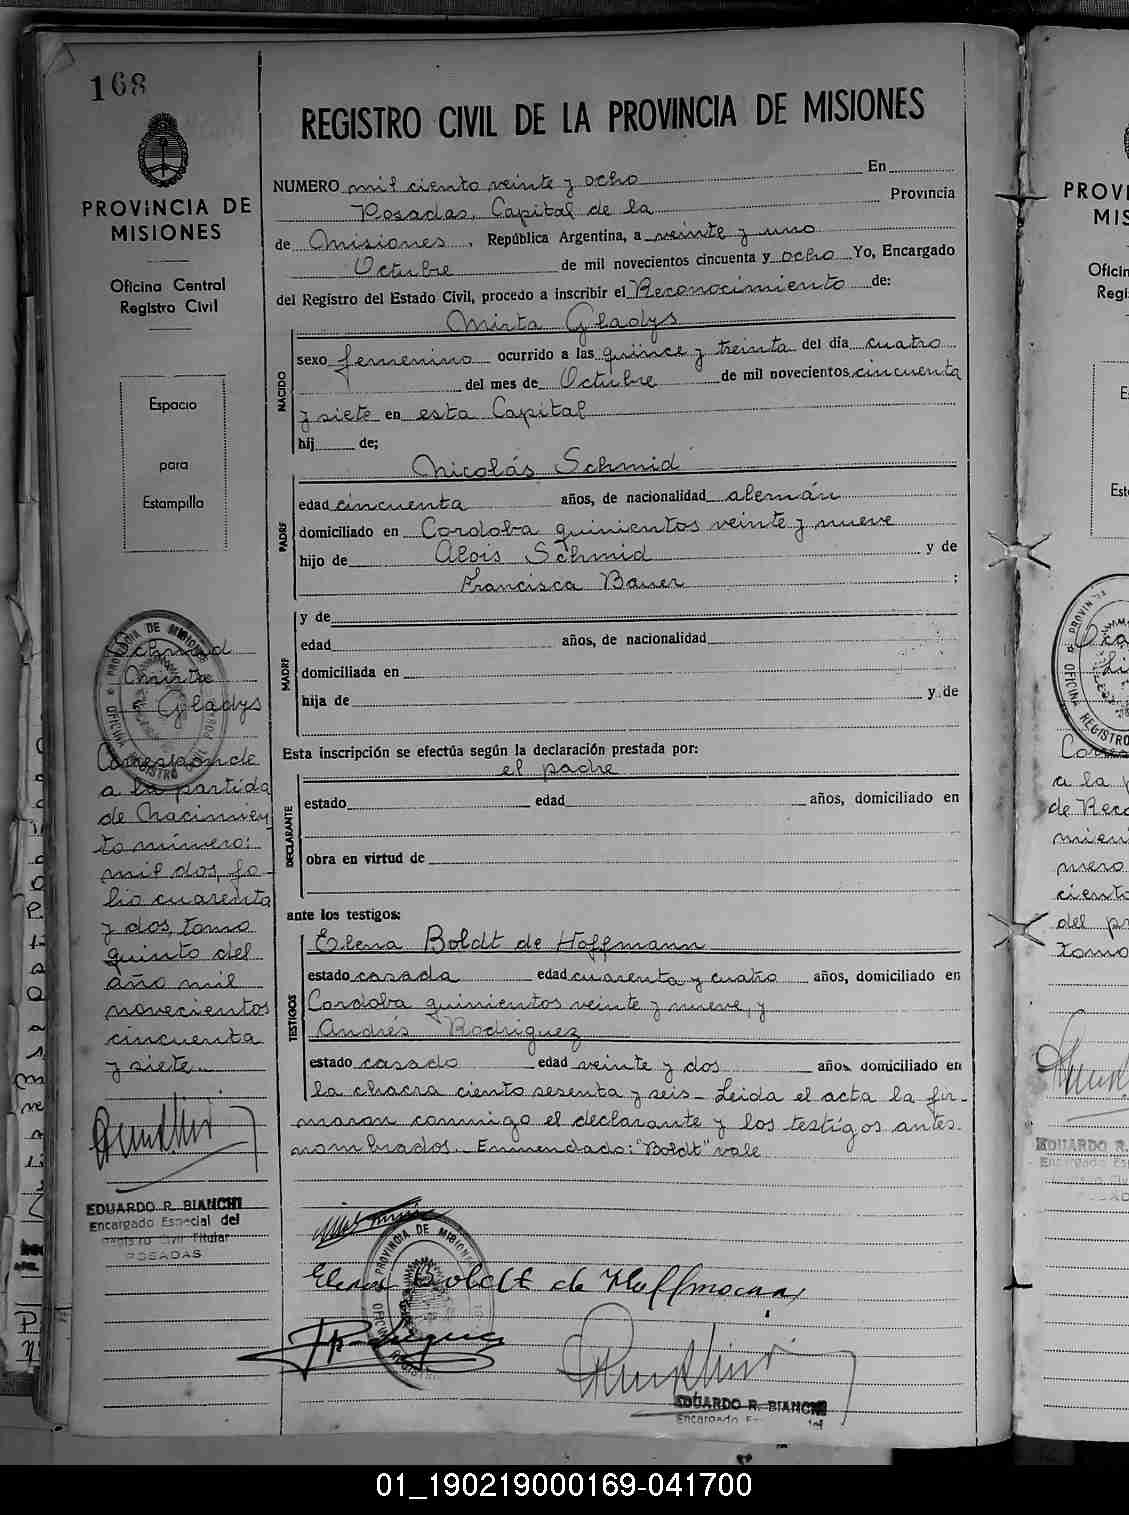 168
PROVINCIA DE
MISIONES
Oficina Central
Registro Civil
Espacio
para
Estampilla
Schmid
Mirta
Gladys
Corresponde
a la partida
de Nacimien
to número:
mil dos, fo-
lio cuarenta
y dos, tomo
quinto del
año mil
novecientos
cincuenta
y siete.
EDUARDO R. BIANCHI
Encargado Especial del
Registro Civil Titular
POSADAS
REGISTRO CIVIL DE LA PROVINCIA DE MISIONES
NUMERO mil ciento veinte y ocho En
Posadas, Capital de la Provincia
de Misiones, República Argentina, a veinte y uno
Octubre de mil novecientos cincuenta y ocho Yo, Encargado
del Registro del Estado Civil, procedo a inscribir el Reconocimiento de:
NACIDO
Mirta Gladys
sexo femenino ocurrido a las quince y treinta del día cuatro
del mes de Octubre de mil novecientos cincuenta
y siete en esta Capital
hij de;
PADRE
Nicolás Schmid
edad cincuenta años, de nacionalidad alemán
domiciliado en Cordoba quinientos veinte y nueve
hijo de Alois Schmid y de
Francisca Bauer ;
MADRE
y de
edad años, de nacionalidad
domiciliada en
hija de y de
Esta inscripción se efectúa según la declaración prestada por:
DECLARANTE
el padre
estado edad años, domiciliado en
obra en virtud de
ante los testigos:
TESTIGOS
Elena Boldt de Hoffmann
estado casada edad cuarenta y cuatro años, domiciliado en
Cordoba quinientos veinte y nueve, y
Andrés Rodriguez
estado casado edad veinte y dos años, domiciliado en
la chacra ciento sesenta y seis - Leida el acta la fir-
maron conmigo el declarante y los testigos antes-
nombrados. - Enmendado: "Boldt" vale
Elena Boldt de Hoffmann
EDUARDO R. BIANCHI
01_190219000169-041700